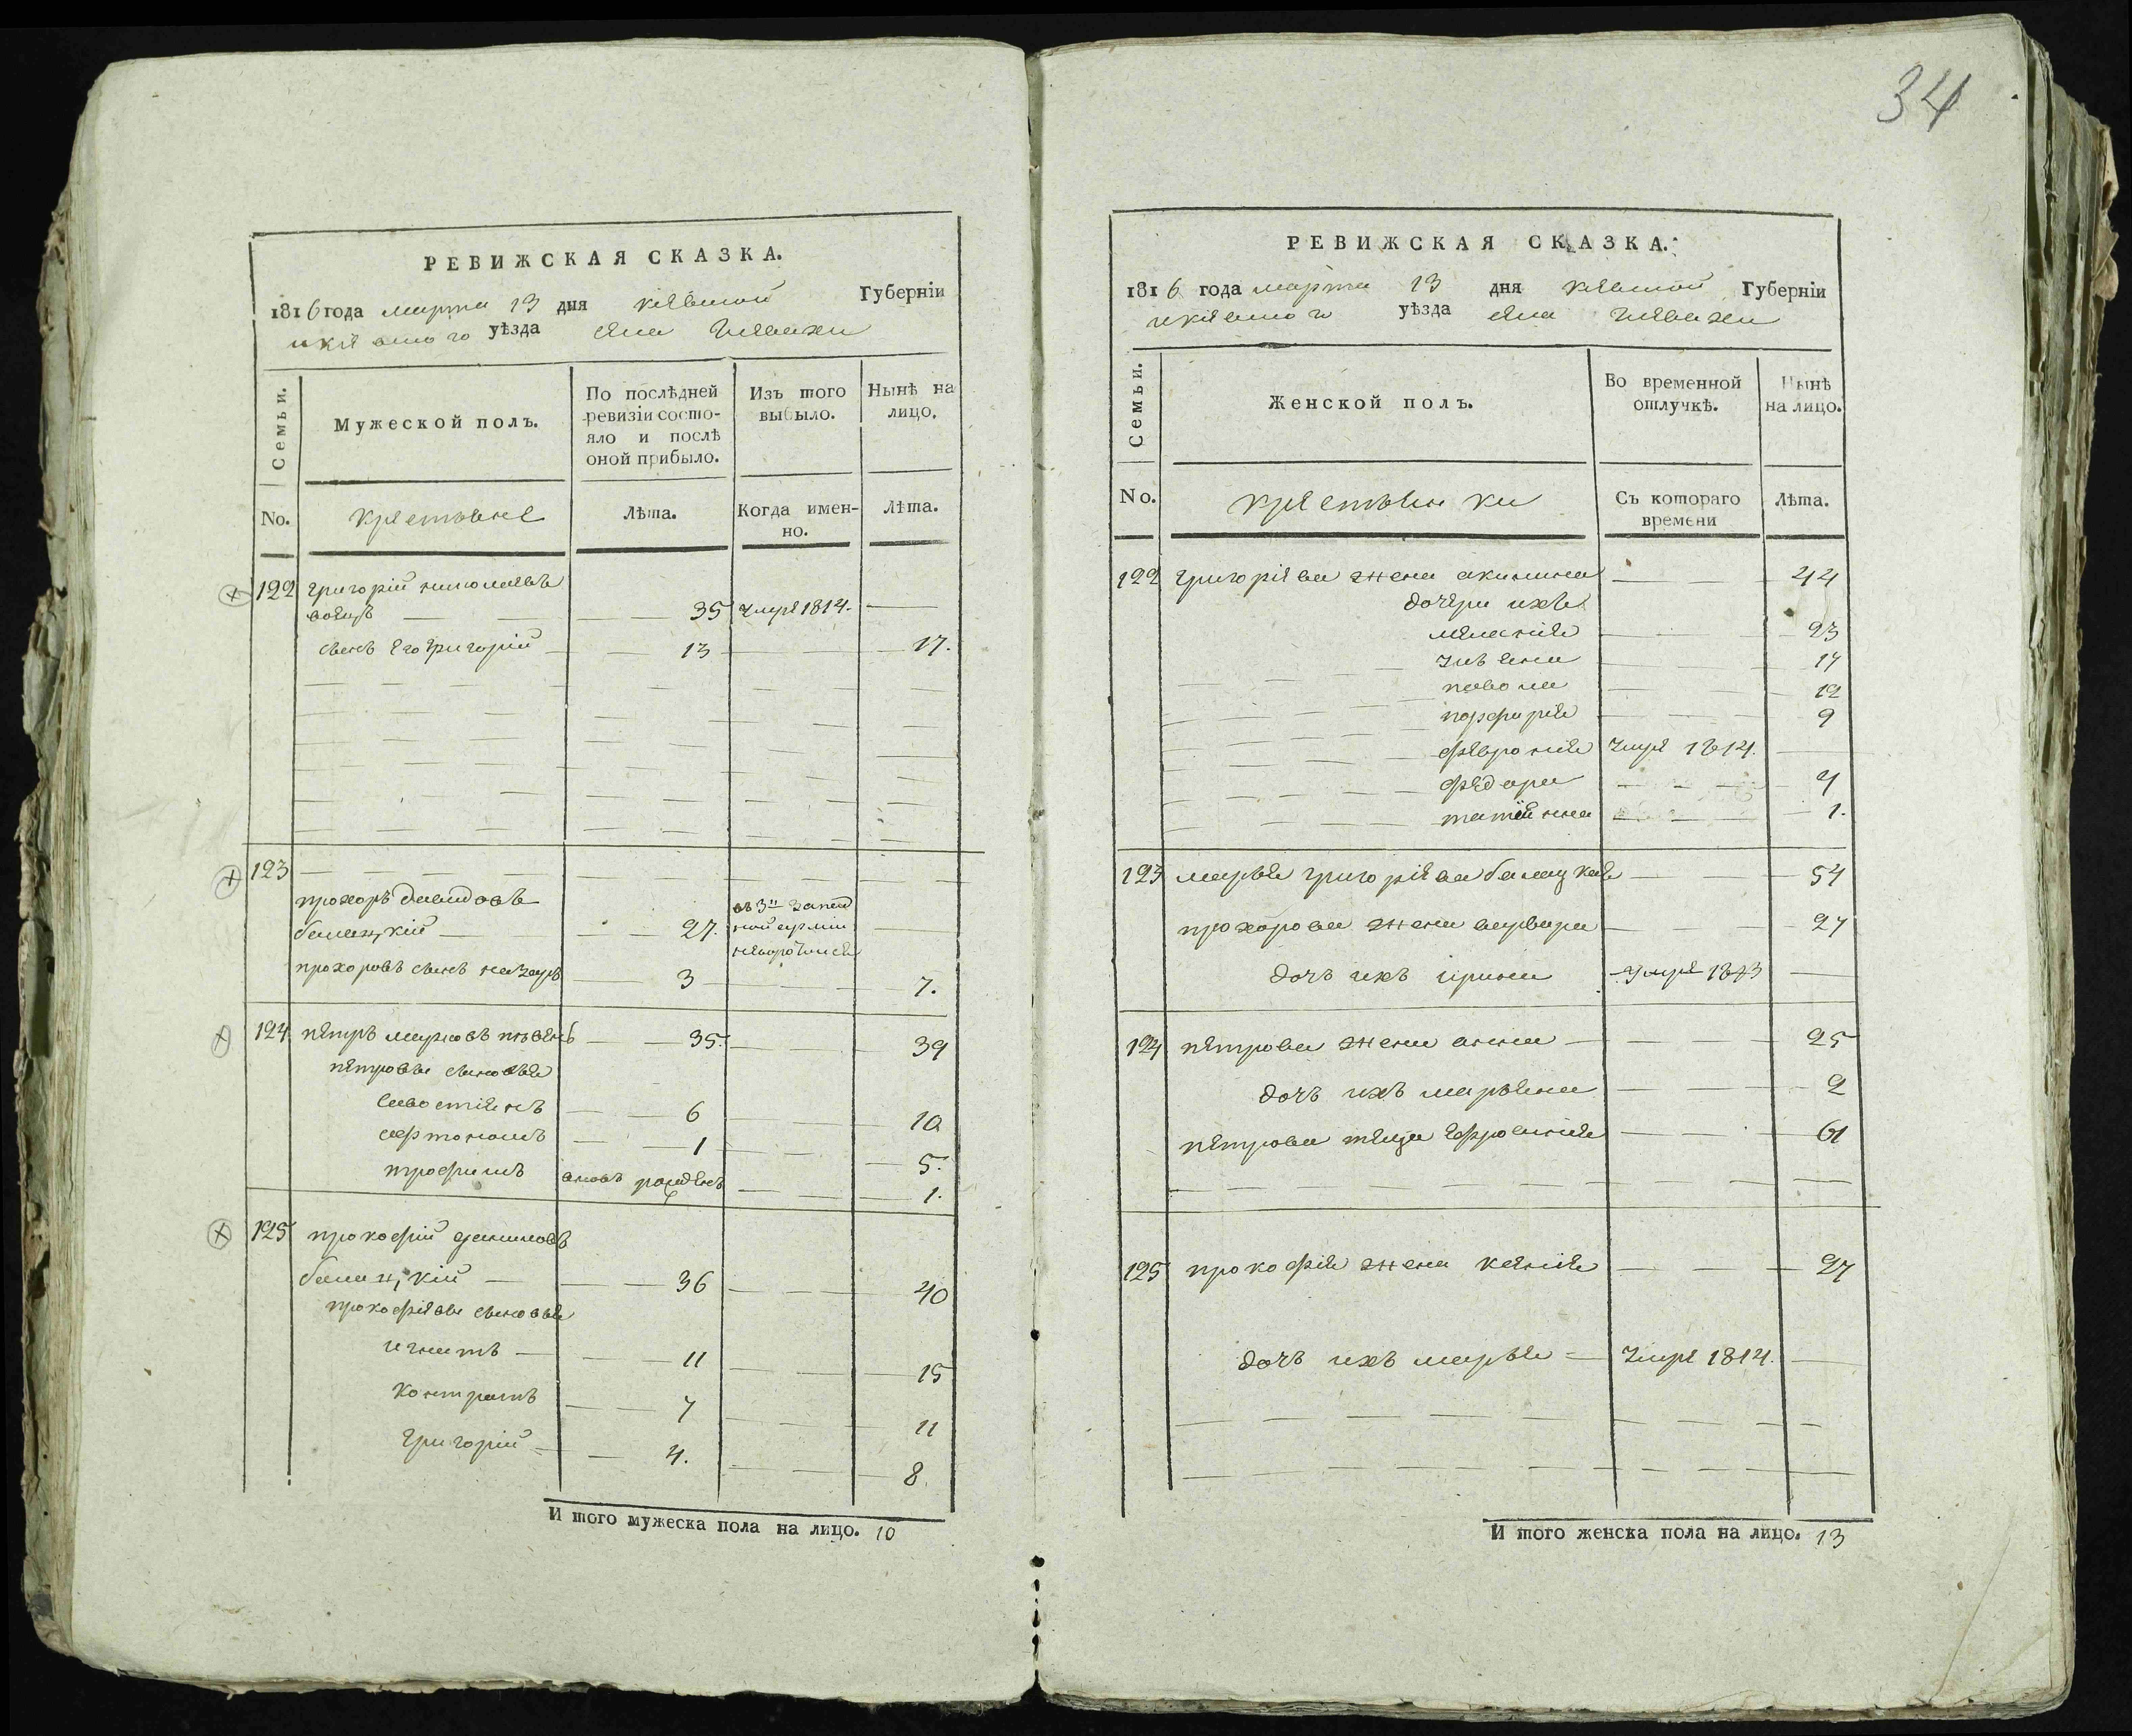 34
РЕВИЖСКАЯ СКАЗКА.
1816 года марта 13 дня киевской Губерніи
икиевского уѣзда села Гвиахи
Семьи.
Мужеской полъ.
По послѣдней ревизіи состо-яло и послѣ оной прибыло.
Изъ того выбыло.
Нынѣ на лицо.
No.
крестьяне
Лѣта.
Когда имен-но.
Лѣта.
122 григорій николаевъ
35 умре 1814. —
сынъ его григорій 13 17.
123
прохоръ давидовъ
балацкій 27.
прохоровъ сынъ назаръ 3 7.
124 петръ марковъ 35. 39
петровы сыновья
савостіянъ 6 10
артономъ 1 5.
трофимъ вновь рожденъ 1.
125 прокофій даниловъ
балацкій — 36 40
прокофіевы сыновья
игнатъ — 11 15
контратъ 7 11
григорій 4. 8.
И того мужеска пола на лицо. 10
РЕВИЖСКАЯ СКАЗКА.
1816 года марта 13 дня киевской Губерніи
икиевского уѣзда села
Семьи.
Женской полъ.
Во временной отлучкѣ.
Нынѣ на лицо.
No.
крестьянки
Съ котораго времени
Лѣта.
122 григоріева жена акилина 44
дочери ихъ
меланія 23
17
12
порфирія 9
феврония умре 1814. —
федора 4
татіянна 1.
123 марья григоріева балацкая 54
прохорова жена варвара 27
дочь ихъ ирина умре 1813 —
124 петрова жена анна 25
дочь ихъ марьяна 2
петрова теща ефросинія 61
125 прокофія жена ксенія 27
дочь ихъ марья умре 1814. —
И того женска пола на лицо. 13